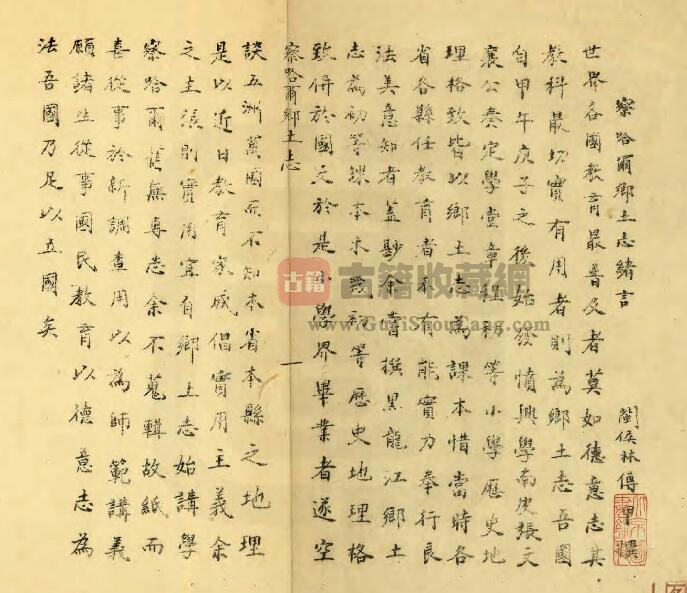 察哈爾鄉土志緒言
閩侯林傳甲撰
世界各國教育最普及者莫如德意志其
教科最切實有用者則為鄉土志吾國
自甲午庚子之後始發憤興學南皮張文
襄公奏定學堂章程初等小學歷史地
理格致皆以鄉土志為課本惜當時各
省各縣任教育者未有能實力奉行良
法美意知者蓋尠余嘗撰黑龍江鄉土
志為初等課本未幾初等歷史地理格
致併於國文於是小學界畢業者遂空
察哈爾鄉土志
一
談五洲萬國而不知本省本縣之地理
是以近日教育家咸倡實用主義余
之主張則實用宜自鄉土志始講學
察哈爾舊無專志余不蒐輯故紙而
喜從事於新調查用以為師範講義
願諸生從事國民教育以德意志為
法吾國乃足以立國矣
古籍
古籍收藏網
www.GuJiShouCang.com